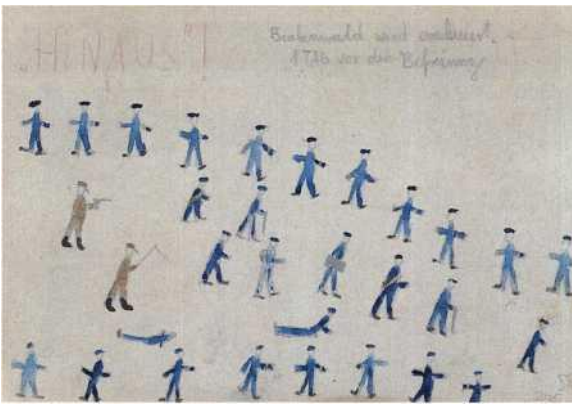 „HINAUS"!
Buchenwald wird evakuiert.
1 TAG vor der Befreiung